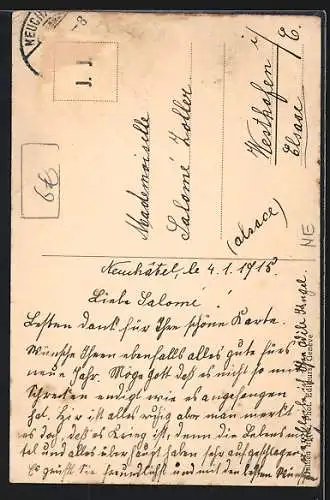 NEUCH
-8
J. J.
6€
Mademoiselle
Salomé Zoller
Westhofen i/E.
Elsass
(Alsace)
NE
Neuchâtel, le 4.1.1915
Liebe Salomé!
Besten dank für Ihre schöne Karte.
Wünsche Ihnen ebenfalls alles gute fürs
neue Jahr. Möge Gott daß es nicht so mit
Schrecken endigt wie es angefangen
hat. Hier ist alles ruhig aber man merkt
es doch, daß es Krieg ist, denn die Lebensmit-
tel und alles ist sehr aufgeschlagen
Es grüßt Sie freundlichst und mit den besten Wünschen